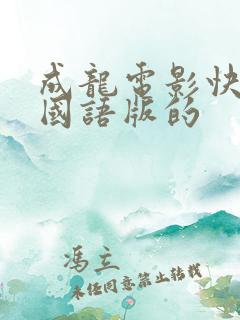 成龍電影快
國語版的
馮立
未经同意禁止转载